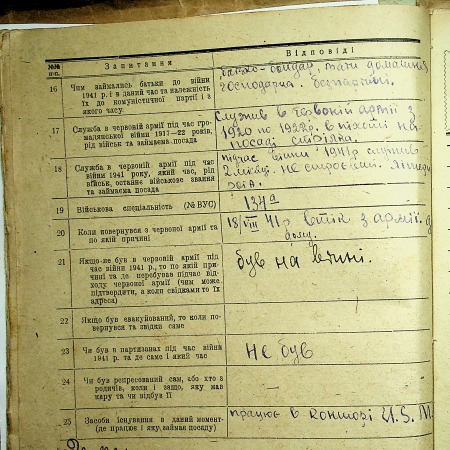 №№ п-п.
Запитання
Відповіді
16
Чим займались батьки до війни
1941 р. і в даний час та належність
їх до комуністичної партії і з
якого часу.
батько-бондар, мати домашня
господарка. безпартійні.
17
Служба в червоній армії під час гро-
мадянської війни 1917—22 років,
рід військ та займаєма посада
Служив в червоній армії з
1920 по 1922 р. в піхоті на
посаді стрілка.
18
Служба в червоній армії під час
війни 1941 року, який час, рід
військ, останнє військове звання
та займаєма посада
підчас війни 1941 р служив
2 місяці. не строєвий.
19
Військова спеціяльність (№ ВУС)
134а
20
Коли повернувся з червоної армії та
по якій причині
18/VIII 41 р. втік з армії
дому.
21
Якщо не був в червоній армії під
час війни 1941 р., то по якій при-
чині та де перебував підчас від-
ходу червоної армії (чим може
підтвердити, а коли свідками то їх
адреса)
був на війні.
22
Якщо був евакуйований, то коли по-
вернувся та звідки саме
23
Чи був в партизанах під час війни
1941 р. та де саме і який час
Не був
24
Чи був репресований сам, або хто з
родичів, коли і защо, яку мав
кару та чи відбув її
25
Засоби існування в даний момент
(де працює і яку займає посаду)
працює в конторі